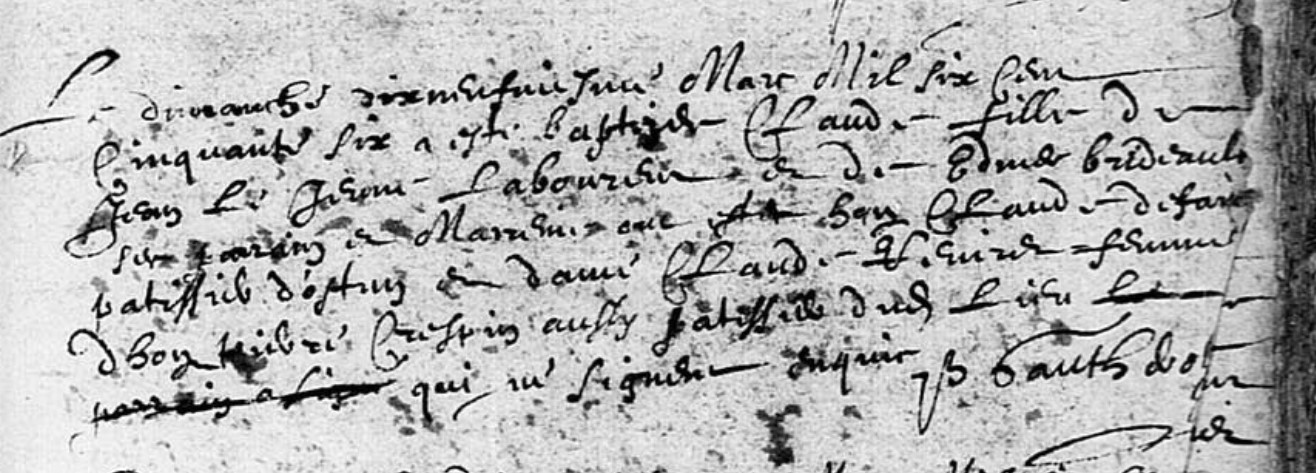 Le dimanche dixneufviesme Mars Mil six cen
Cinquante six a este baptizee Claude fille de
Jean le Jeune Laboureur et de Edmee brideault
ses parain et Mareine ont este hon Claude defair
patissier dostun et dame Claude femme
dhon Crespin aussy patissier dud Lieu le
parrain a signe qui ne signent enquis